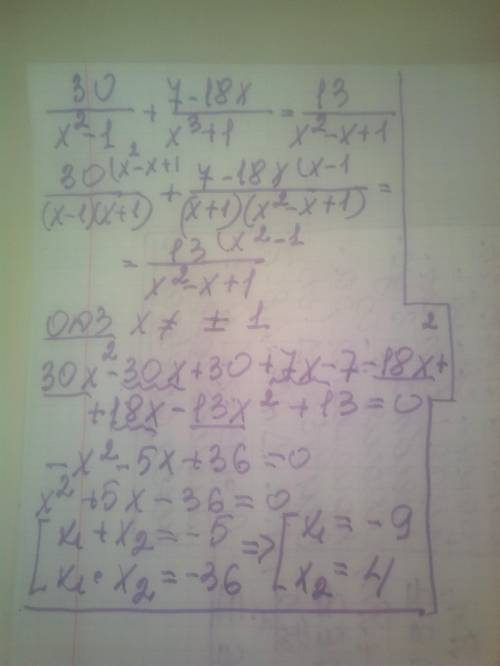 30/(x²-1) + (7-18x)/(x³+1) = 13/(x²-x+1)
30(x²-x+1/((x-1)(x+1)) + 7-18x(x-1/((x+1)(x²-x+1)) =
= 13(x²-1/(x²-x+1)
ОДЗ x ≠ ± 1
30x²-30x+30+7x-7-18x²+
+18x-13x²+13=0
-x²-5x+36=0
x²+5x-36=0
[x₁+x₂=-5 => [x₁=-9
[x₁·x₂=-36 [x₂=4